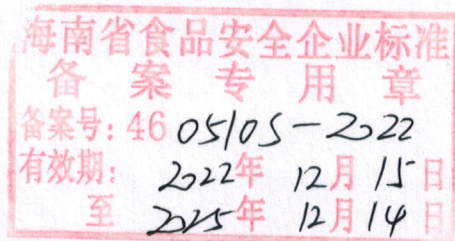 海南省食品安全企业标准
备案专用章
备案号：46 0510S-2022
有效期： 2022年 12月 15日
至 2025年 12月 14日